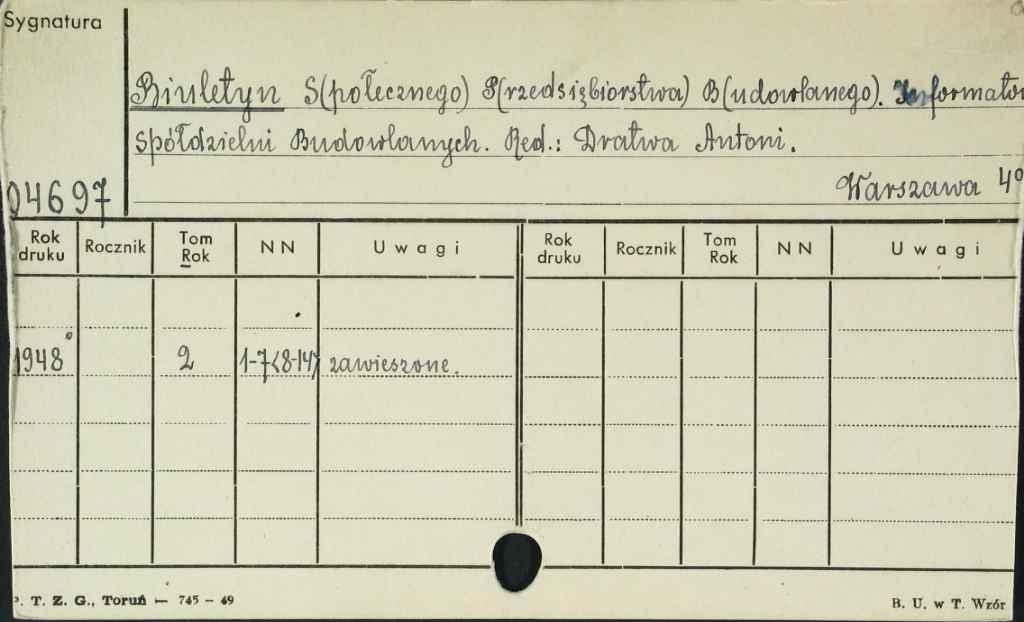 Sygnatura
Biuletyn S(połecznego) P(rzedsiębiorstwa) B(udowlanego). Informator
Spółdzielni Budowlanych. Red.: Dratwa Antoni.
Warszawa 4º
04697
Rok druku Rocznik Tom Rok N N Uwagi Rok druku Rocznik Tom Rok N N Uwagi
1948 2 1-7<8-14> zawieszone.
P. T. Z. G., Toruń — 745 - 49 B. U. w T. Wzór